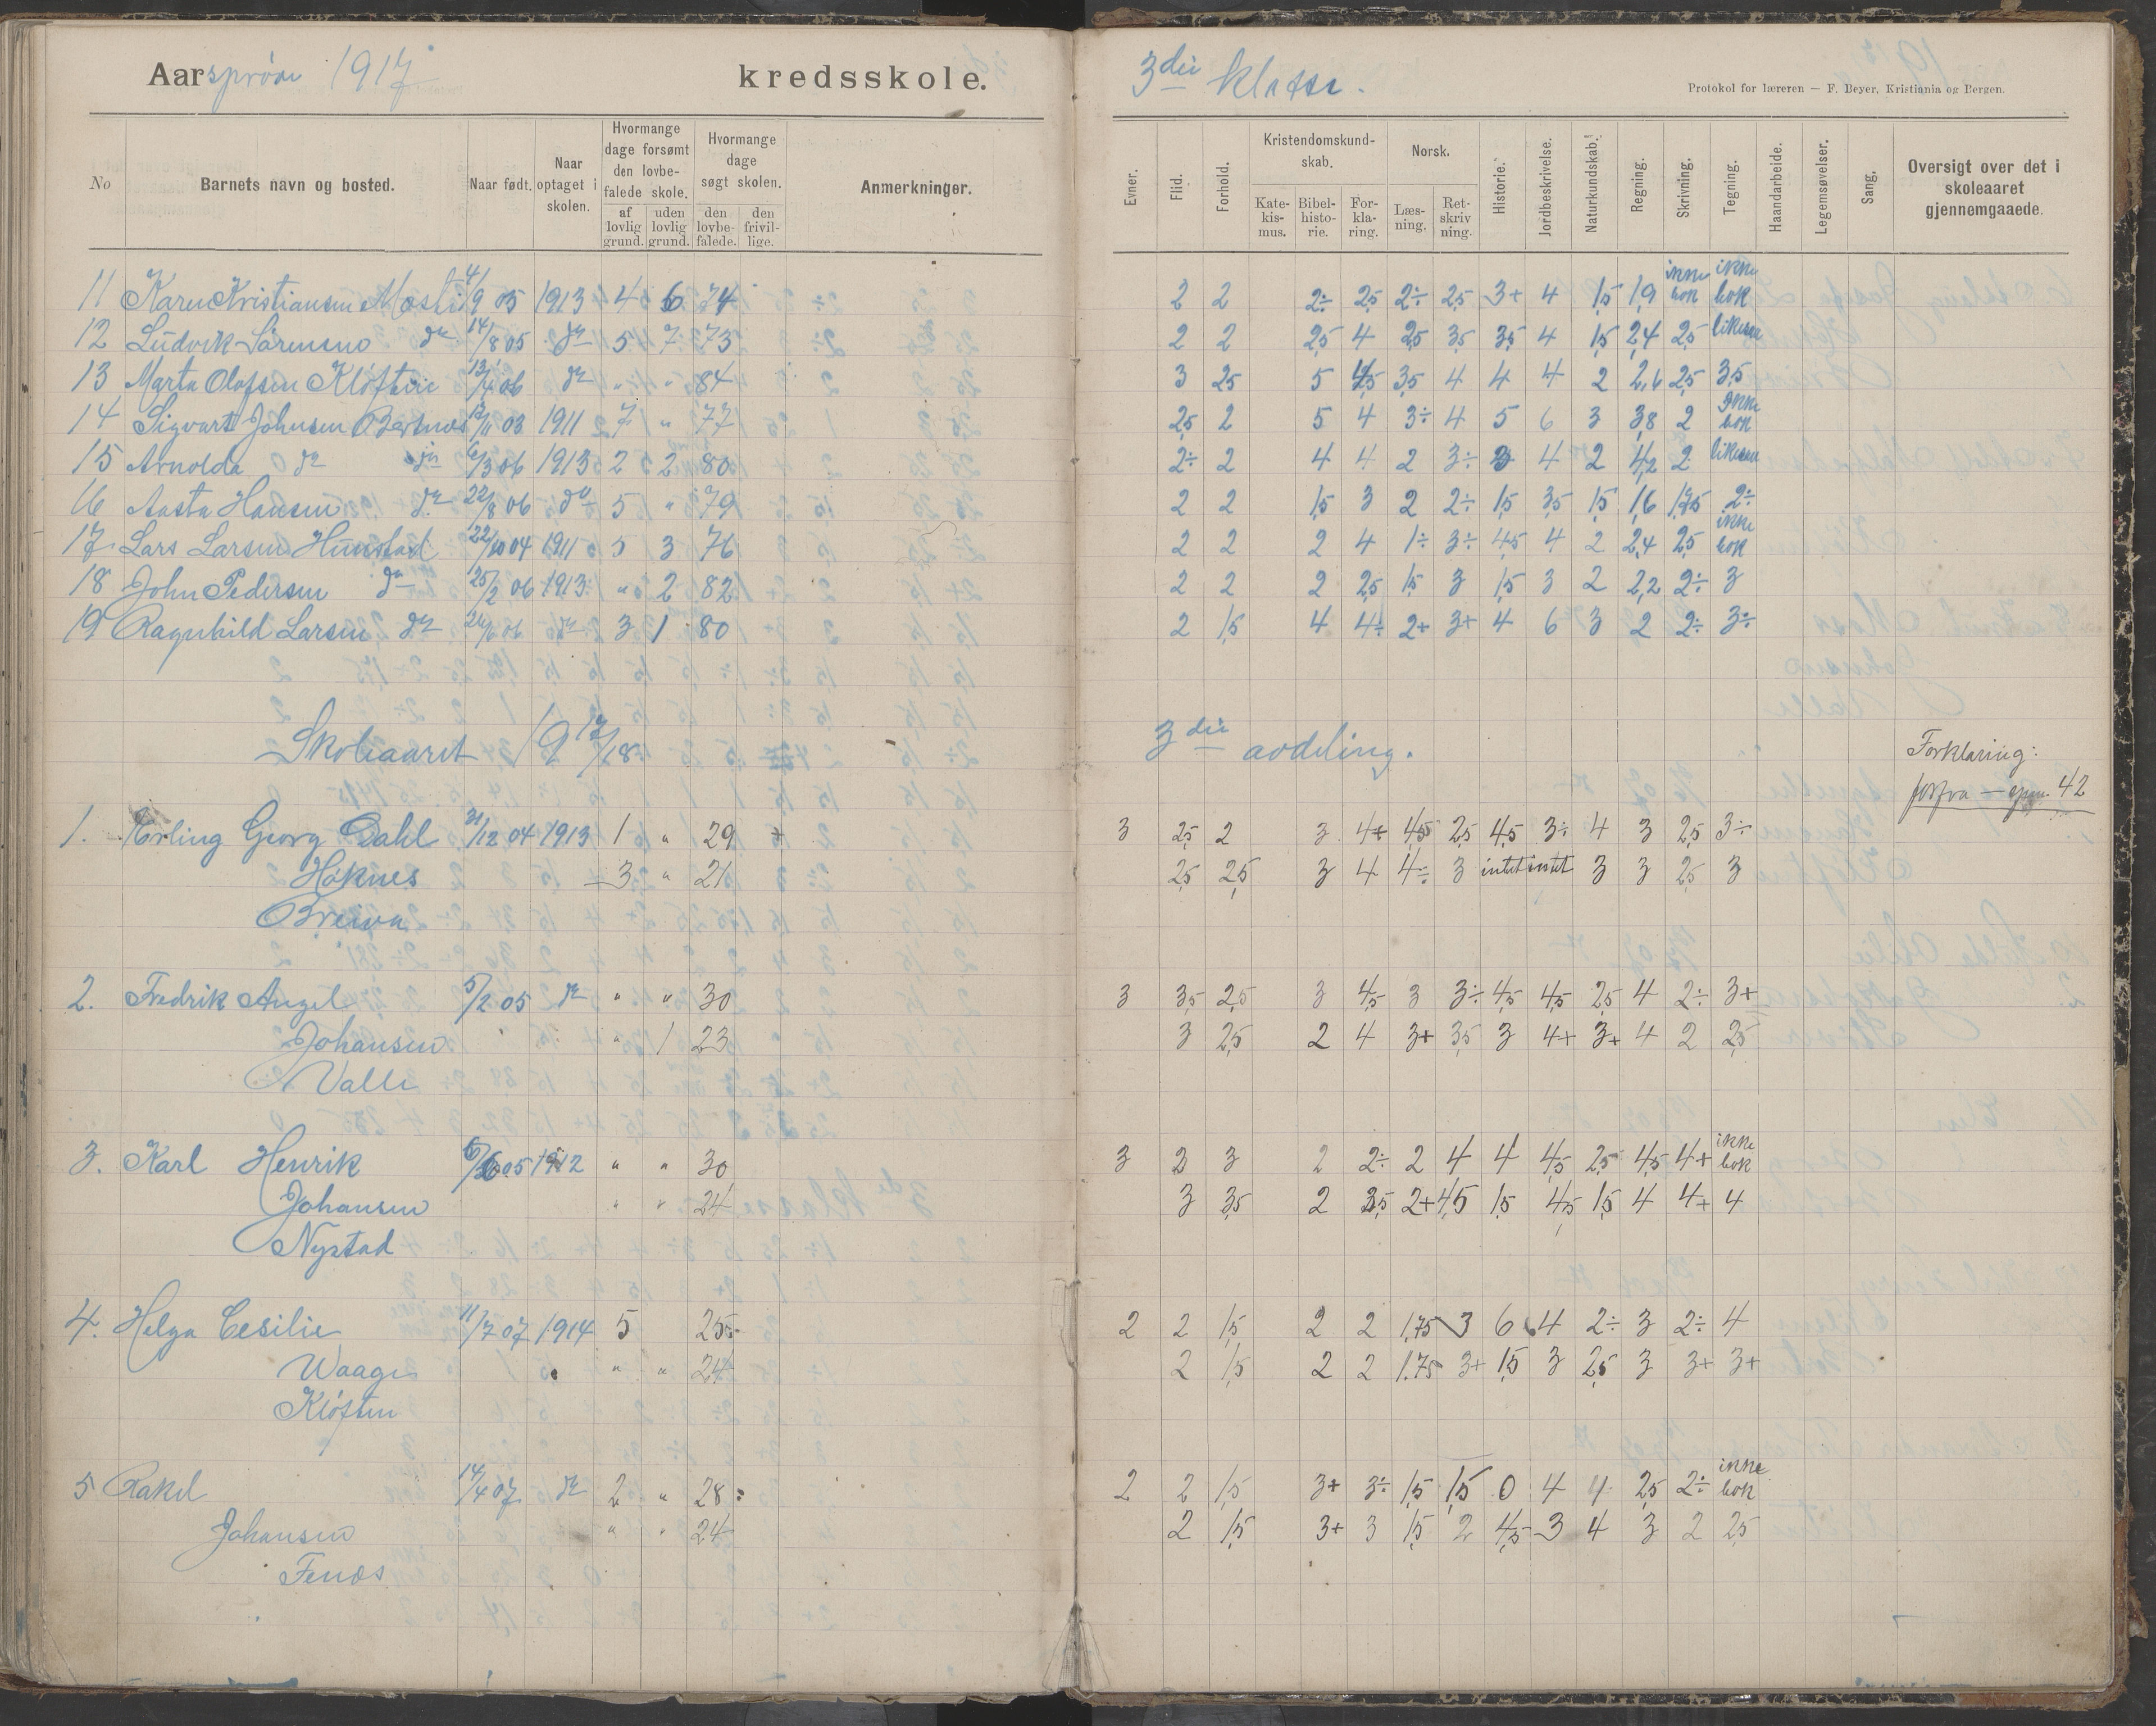 Aarsprøve 1917 kredsskole. 3die klasse.
Protokol for læreren — F. Beyer, Kristiania og Bergen.
No Barnets navn og bosted. Naar født. Naar optaget i skolen. Hvormange dage forsømt den lovbefalede skole. af lovlig grund. uden lovlig grund. Hvormange dage søgt skolen. den lovbefalede. den frivillige. Anmerkninger.
Evner. Flid. Forhold. Kristendomskundskab. Katekismus. Bibelhistorie. Forklaring. Norsk. Læsning. Retskrivning. Historie. Jordbeskrivelse. Naturkundskab. Regning. Skrivning. Tegning. Haandarbeide. Legemsøvelser. Sang. Oversigt over det i skoleaaret gjennemgaaede.
11 Karen Kristiansen 4/9 05 1913 4 6 74 2 2 2÷ 2,5 2÷ 2,5 3+ 4 1,5 1,9 ikke bok ikke bok
12 Ludvik Sørensen do 14/8 05 do 5 7 73 2 2 2,5 4 2,5 3,5 3,5 4 1,5 2,4 2,5 likesaa
13 Marta Olafsen Kløftvie 13/4 06 do " " 84 3 2,5 5 4,5 3,5 4 4 4 2 2,6 2,5 3,5
14 Sigvart Johnsen Bertnes 12/11 03 1911 7 " 77 2,5 2 5 4 3÷ 4 5 6 3 3,8 2 Ikke bok
15 Arnolda do do 6/3 06 1913 2 2 80 2÷ 2 4 4 2 3÷ 3 4 2 4,2 2 likesaa
16 Aasta Hansen do 22/8 06 do 5 " 79 2 2 1,5 3 2 2÷ 1,5 3,5 1,5 1,6 1,75 2÷
17 Lars Larsen Hunstad 22/10 04 1911 5 3 76 2 2 2 4 1÷ 3÷ 4,5 4 2 2,4 2,5 ikke bok
18 John Pedersen do 25/2 06 1913 " 2 82 2 2 2 2,5 1,5 3 1,5 3 2 2,2 2÷ 3
19 Ragnhild Larsen do 26/6 06 do 3 1 80 2 1,5 4 4÷ 2+ 3+ 4 6 3 2 2÷ 3÷
Skoleaaret 1917/18 3die avdeling.
Forklaring:
forfra — spm. 42
1. Erling Georg Dahl 31/12 04 1913 1 " 29 3 2,5 2 3 4+ 4,5 2,5 4,5 3÷ 4 3 2,5 3÷
Høknes 3 " 21 2,5 2,5 3 4 4÷ 3 intet intet 3 3 2,5 3
Breiva
2. Fredrik Angel 5/2 05 do " " 30 3 3,5 2,5 3 4,5 3 3÷ 4,5 4,5 2,5 4 2÷ 3+
Johansen " 1 23 3 2,5 2 4 3+ 3,5 3 4+ 3+ 4 2 2,5
Valle
3. Karl Henrik 05 1912 " " 30 3 3 3 2 2÷ 2 4 4 4,5 2,5 4,5 4+ ikke bok
Johansen " " 24 3 3,5 2 3,5 2+ 4,5 1,5 4,5 1,5 4 4+ 4
Nystad
4. Helga Cesilie 11/7 07 1914 5 25 2 2 1,5 2 2 1,75 3 6 4 2÷ 3 2÷ 4
Waage " " " 24 2 1,5 2 2 1.75 3+ 1,5 3 2,5 3 3+ 3+
Kløften
5 Rakel 14/4 07 do 2 " 28 2 2 1,5 3+ 3÷ 1,5 1,5 0 4 4 2,5 2÷ ikke bok
Johansen " " 24 2 1,5 3+ 3 1,5 2 4,5 3 4 3 2 2,5
Fenes